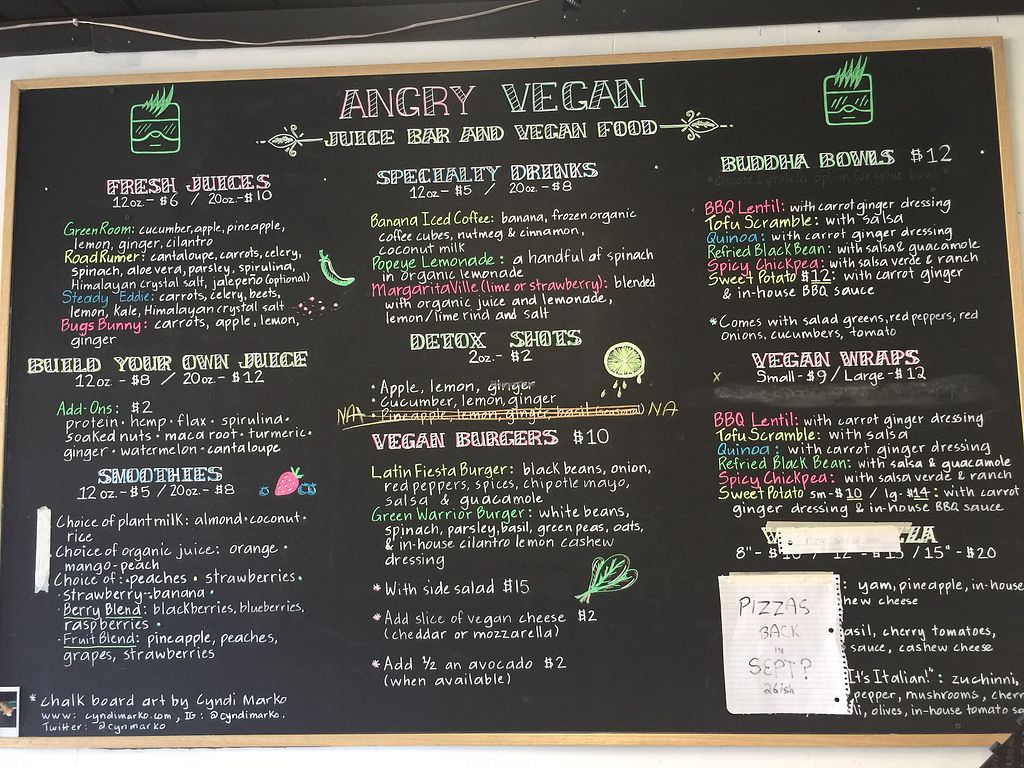 ANGRY VEGAN
JUICE BAR AND VEGAN FOOD
FRESH JUICES
12oz - $6 / 20oz - $10
Green Room: cucumber, apple, pineapple,
lemon, ginger, cilantro
Road Runner: cantaloupe, carrots, celery,
spinach, aloe vera, parsley, spirulina,
Himalayan crystal salt, jalepeño (optional)
Steady Eddie: carrots, celery, beets,
lemon, kale, Himalayan crystal salt
Bugs Bunny: carrots, apple, lemon,
ginger
BUILD YOUR OWN JUICE
12 oz - $8 / 20oz - $12
Add-Ons: $2
protein • hemp • flax • spirulina •
soaked nuts • maca root • turmeric •
ginger • watermelon • cantaloupe
SMOOTHIES
12 oz - $5 / 20oz - $8
Choice of plant milk: almond • coconut •
rice
Choice of organic juice: orange •
mango-peach
Choice of: peaches • strawberries •
strawberry-banana •
Berry Blend: blackberries, blueberries,
raspberries •
Fruit Blend: pineapple, peaches,
grapes, strawberries
* chalk board art by Cyndi Marko
www: cyndimarko.com, IG: @cyndimarko.
Twitter: @cynmarko
SPECIALTY DRINKS
12oz - $5 / 20oz - $8
Banana Iced Coffee: banana, frozen organic
coffee cubes, nutmeg & cinnamon,
coconut milk
Popeye Lemonade: a handful of spinach
in organic lemonade
MargaritaVille (lime or strawberry): blended
with organic juice and lemonade,
lemon/lime rind and salt
DETOX SHOTS
2oz. - $2
• Apple, lemon, ginger
• Cucumber, lemon, ginger
NA • Pineapple, lemon, ginger, basil (seasonal) NA
VEGAN BURGERS $10
Latin Fiesta Burger: black beans, onion,
red peppers, spices, chipotle mayo,
salsa & guacamole
Green Warrior Burger: white beans,
spinach, parsley, basil, green peas, oats,
& in-house cilantro lemon cashew
dressing
* With side salad $15
* Add slice of vegan cheese $2
(cheddar or mozzarella)
* Add ½ an avocado $2
(when available)
BUDDHA BOWLS $12
*choose 1 protein option for your bowl
BBQ Lentil: with carrot ginger dressing
Tofu Scramble: with salsa
Quinoa: with carrot ginger dressing
Refried Black Bean: with salsa & guacamole
Spicy Chickpea: with salsa verde & ranch
Sweet Potato $12: with carrot ginger
& in-house BBQ sauce
*Comes with salad greens, red peppers, red
onions, cucumbers, tomato
VEGAN WRAPS
x Small - $9 / Large - $12
BBQ Lentil: with carrot ginger dressing
Tofu Scramble: with salsa
Quinoa: with carrot ginger dressing
Refried Black Bean: with salsa & guacamole
Spicy Chickpea: with salsa verde & ranch
Sweet Potato sm - $10 / lg - $14: with carrot
ginger dressing & in-house BBQ sauce
8" - $10 12" - $15 / 15" - $20
: yam, pineapple, in-house
cheese
cherry tomatoes,
sauce, cashew cheese
It's Italian!": zuchinni,
pepper, mushrooms,
olives, in-house tomato
PIZZAS
BACK
IN
SEPT?
26ish